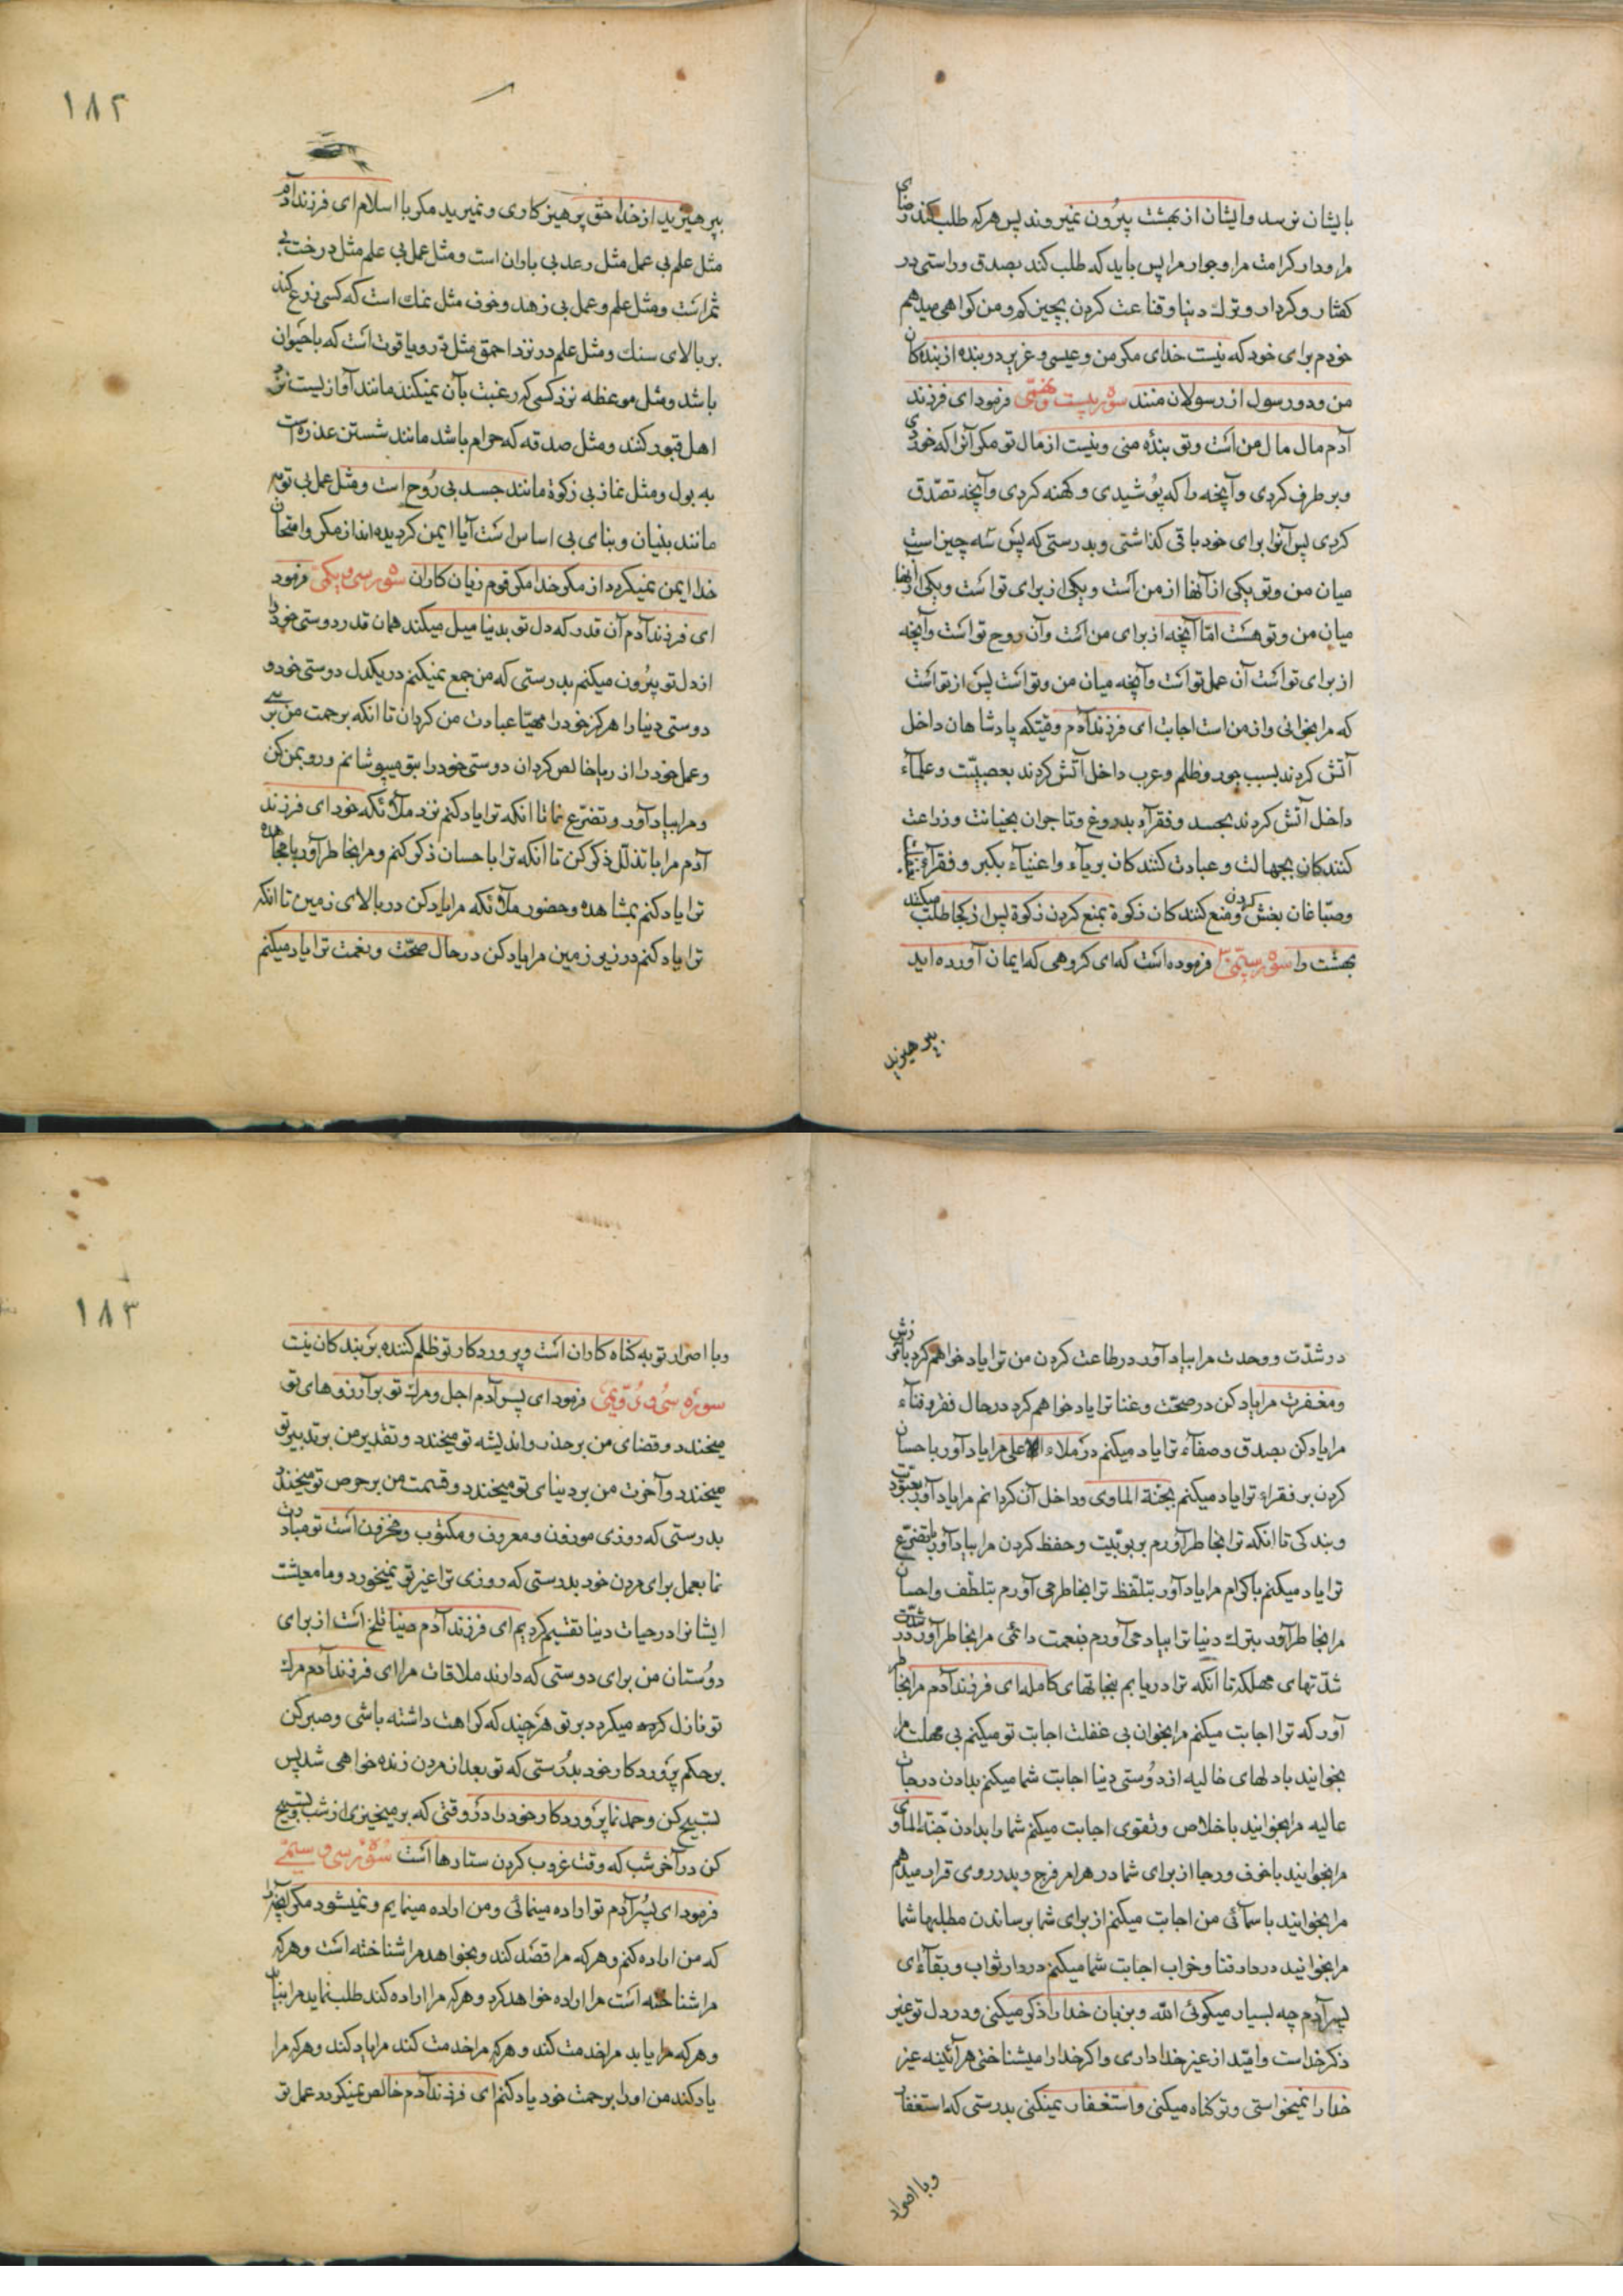 بایشان نرسد وایشان از بهشت بیرون نمیروند پس هرکه طلب کند رضای
مرا ودار کرامت مرا وجوار مرا پس باید که طلب کند بصدق وراستی در
کفتار وکردار وترك دنیا وقناعت کردن بچیز کم ومن کواهی میدهم
خودم برای خود که نیست خدای مکر من وعیسی وعزیر دو بنده از بندکان
من ودو رسول از رسولان منند سوره بیست ونهمی فرمود ای فرزند
آدم مال مال من است وتو بنده منی ونیست از مال تو مکر آنرا که خوردی
وبر طرف کردی وآنچه را که پوشیدی وکهنه کردی وآنچه تصدّق
کردی پس آنرا برای خود باقی کذاشتی وبدرستی که پس سه چیز است
میان من وتو یکی از آنها از من است ویکی از برای تو است ویکی از آنها
میان من وتو هست امّا آنچه از برای من است وآن روح تو است وآنچه
از برای تو است آن عمل تو است وآنچه میان من وتو است پس از تو است
که مرا بخوانی واز من است اجابت ای فرزند آدم وقتیکه پادشاهان داخل
آتش کردند بسبب جور وظلم وعرب داخل آتش کردند بعصبیّت وعلمآء
داخل آتش کردند بحسد وفقرآء بدروغ وتاجران بخیانت وزراعت
کنندکان بجهالت وعبادت کنندکان بریآء واغنیآء بکبر وفقرآء
وصبّاغان بغش کردن ومنع کنندکان زکوة بمنع کردن زکوة پس از کجا طلب میکند
بهشت را سوره سیّمی ۳۰ فرموده است که ای کروهی که ایمان آورده اید
بپرهیزید
۱۸۲
بپرهیزید از خدا حق پرهیزکاری ونمیرید مکر با اسلام ای فرزند آدم
مثل علم بی عمل مثل رعد بی باران است ومثل عمل بی علم مثل درخت بی
ثمر است ومثل علم وعمل بی زهد وخوف مثل نمك است که کسی زرع کند
بر بالای سنك ومثل علم در نزد احمق مثل درّ ویاقوت است که با حیوان
باشد ومثل موعظه نزد کسی که رغبت بآن نمیکند مانند آوازیست نزد
اهل قبور کنند ومثل صدقه که حرام باشد مانند شستن عذره است
به بول ومثل نماز بی زکوة مانند جسد بی روح است ومثل عمل بی توبه
مانند بنیان وبنای بی اساس است آیا ایمن کردیده اند از مکر وامتحان
خدا ایمن نمیکردد از مکر خدا مکر قوم زیان کاران سوره سی ویکمی فرمود
ای فرزند آدم آن قدر که دل تو بدنیا میل میکند همان قدر دوستی خود را
از دل تو بیرون میکنم بدرستی که من جمع نمیکنم در یکدل دوستی خود و
دوستی دنیا را هرکز خود را مهیّا عبادت من کردان تا انکه برحمت من برسی
وعمل خود را از ریا خالص کردان دوستی خود را بتو میپوشانم ورو بمن کن
ومرا بیاد آور وتضرّع نما تا انکه ترا یاد کنم نزد ملآئکه خود ای فرزند
آدم مرا با تذلّل ذکر کن تا آنکه ترا با حسان ذکر کنم ومرا بخاطر آور بامجاهده
ترا یاد کنم بمشاهده وحضور ملآئکه مرا یاد کن در بالای زمین تا انکه
ترا یاد کنم در زیر زمین مرا یاد کن در حال صحّت ونعمت ترا یاد میکنم
در شدّت ووحدت مرا بیاد آور در طاعت کردن من ترا یاد خواهم کرد بآمرزش
ومغفرت مرا یاد کن در صحّت وغنا ترا یاد خواهم کرد در حال فقر وفنآء
مرا یاد کن بصدق وصفآء ترا یاد میکنم در ملاء الاعلی مرا یاد آور با حسان
کردن بر فقرا ترا یاد میکنم بجنّة الماوی وداخل آن کردانم مرا یاد آور بعبودیت
وبندکی تا انکه ترا بخاطر آورم بربوبیّت وحفظ کردن مرا بیاد آور با تضرّع
ترا یاد میکنم با کرام مرا یاد آور بتلفّظ ترا بخاطر می آورم بتلطّف واحسان
مرا بخاطر آور بترك دنیا ترا بیاد می آورم بنعمت دائمی مرا بخاطر آور در شدّت
شدّتهای مهلکه تا انکه ترا دریابم بنجاتهای کامله ای فرزند آدم مرا بخاطر
آور که ترا اجابت میکنم مرا بخوان بی غفلت اجابت تو میکنم بی مهلت مرا
بخوانید با دلهای خالیه از دوستی دنیا اجابت شما میکنم بدادن درجات
عالیه مرا بخوانید با خلاص وتقوی اجابت میکنم شما را بدادن جنّة الماوی
مرا بخوانید با خوف ورجا از برای شما در هر امر فرج وبدرروی قرار میدهم
مرا بخوانید با سمآئی من اجابت میکنم از برای شما برساندن مطلبها شما
مرا بخوانید در دار فنا وخراب اجابت شما میکنم در دار ثواب وبقآء ای
پسر آدم چه بسیار میکوئی الله وبزبان خدا را ذکر میکنی ودر دل تو غیر
ذکر خداست وامیّد از غیر خدا داری واکر خدا را میشناختی هرآئینه غیر
خدا را نمیخواستی وتو کناه میکنی واستغفار نمیکنی بدرستی که استغفار
وبا اصرار
۱۸۳
وبا اصرار توبه کناه کاران است وپروردکار تو ظلم کننده بر بندکان نیست
سوره سی و دویمی فرمود ای پسر آدم اجل ومرك تو بر آرزوهای تو
میخندد وقضای من بر حذر واندیشه تو میخندد وتقدیر من بر تدبیر تو
میخندد وآخرت من بر دنیای تو میخندد وقسمت من بر حرص تو میخندد
بدرستی که روزی موزون ومعروف ومکتوب ومخزون است تو مبادرت
نما بعمل برای مردن خود بدرستی که روزی ترا غیر تو نمیخورد وما معیشت
ایشانرا در حیات دنیا تقسیم کردیم ای فرزند آدم دنیا تلخ است از برای
دوستان من برای دوستی که دارند ملاقات مرا ای فرزند آدم مرك
تو نازل کرده میکردد بر تو هرچند که کراهت داشته باشی وصبر کن
بر حکم پروردکار خود بدرستی که تو بعد از مردن زنده خواهی شد پس
تسبیح کن وحمد نما پروردکار خود را در وقتی که بر میخیزی از شب وتسبیح
کن در آخر شب که وقت غروب کردن ستارها است سوره سی و سیّمی
فرمود ای پسر آدم تو اراده مینمائی ومن اراده مینمایم ونمیشود مکر آنچه را
که من اراده کنم وهرکه مرا قصد کند وبخواهد مرا شناخته است وهرکه
مرا شناخته است مرا اراده خواهد کرد وهرکه مرا اراده کند طلب نماید مرا بیابد
وهرکه مرا یابد مرا خدمت کند وهرکه مرا خدمت کند مرا یاد کند وهرکه مرا
یاد کند من او را برحمت خود یاد کنم ای فرزند آدم خالص نمیکردد عمل تو